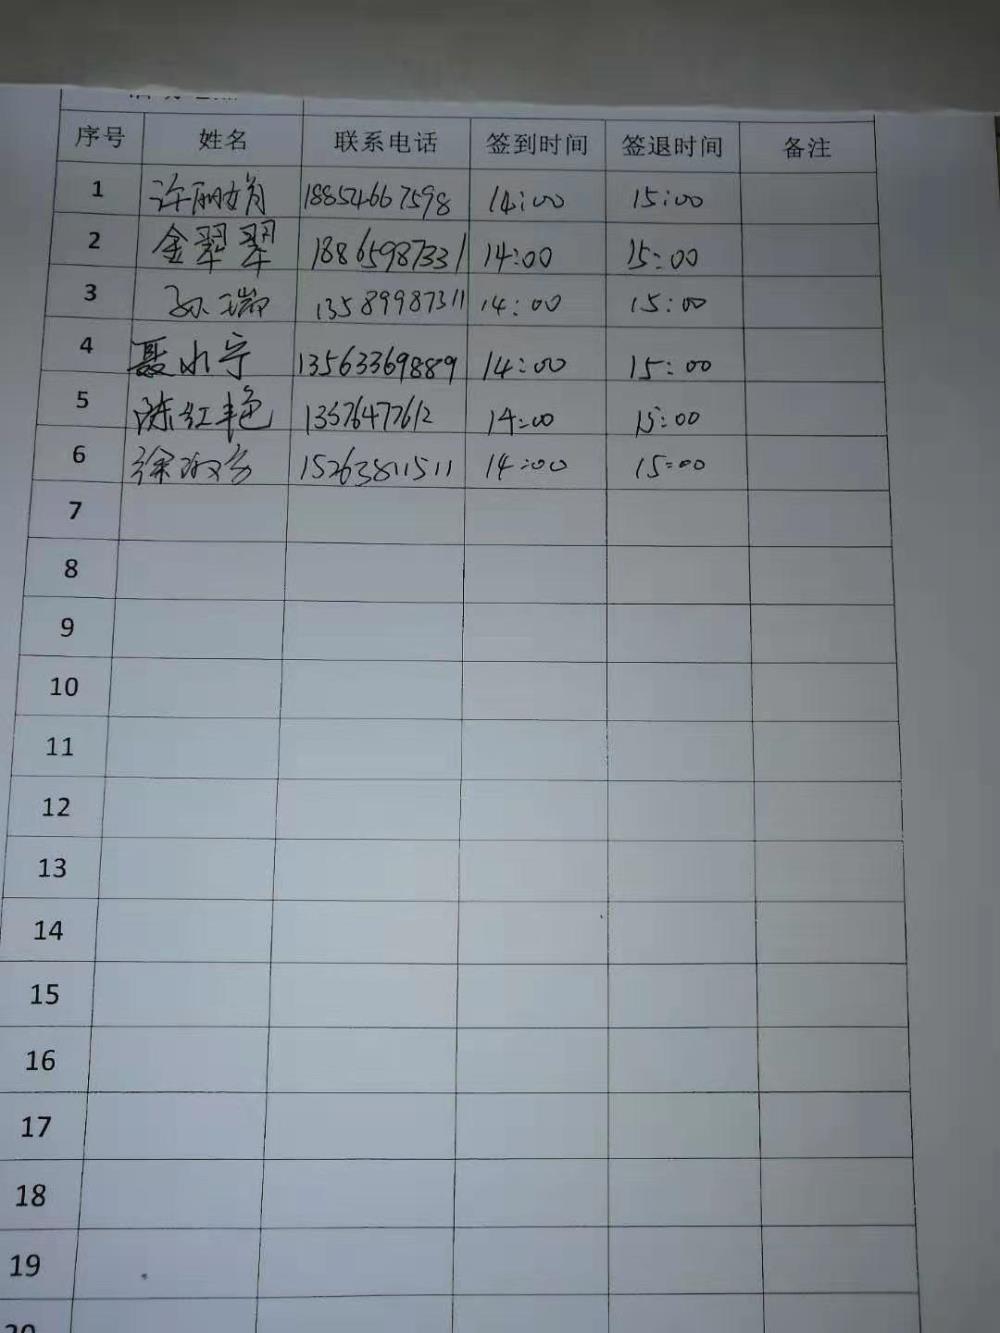 序号 姓名 联系电话 签到时间 签退时间 备注
1 许丽娟 18854667598 14:00 15:00
2 金翠翠 18865987331 14:00 15:00
3 孙瑞 13589987311 14:00 15:00
4 聂小宁 13563369889 14:00 15:00
5 陈红艳 14:00 15:00
6 徐 15263811511 14:00 15:00
7
8
9
10
11
12
13
14
15
16
17
18
19
20